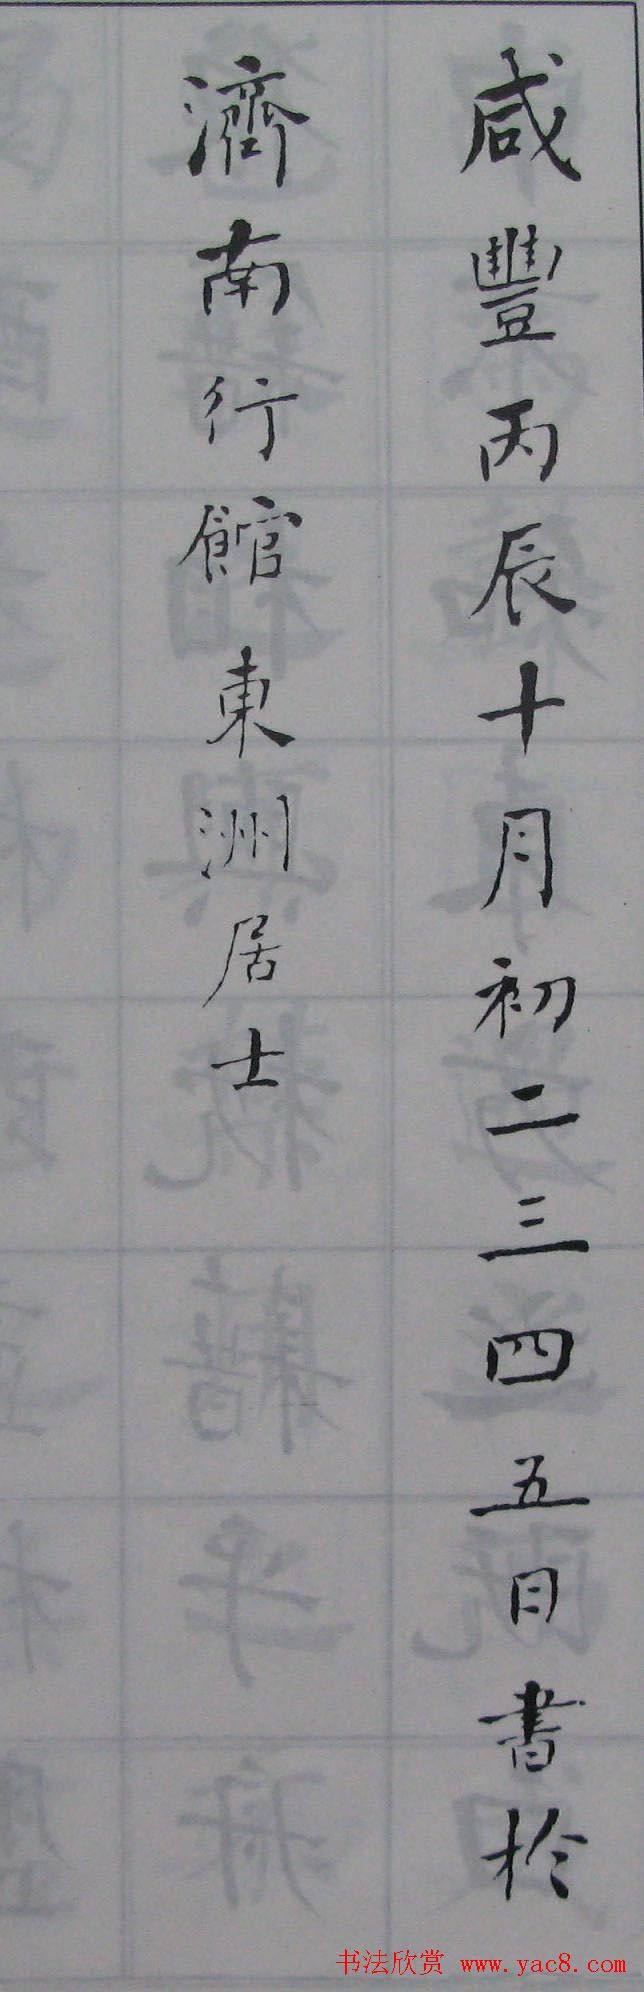 咸豐丙辰十月初二三四五日書於
濟南行館東洲居士
书法欣赏 www.yac8.com